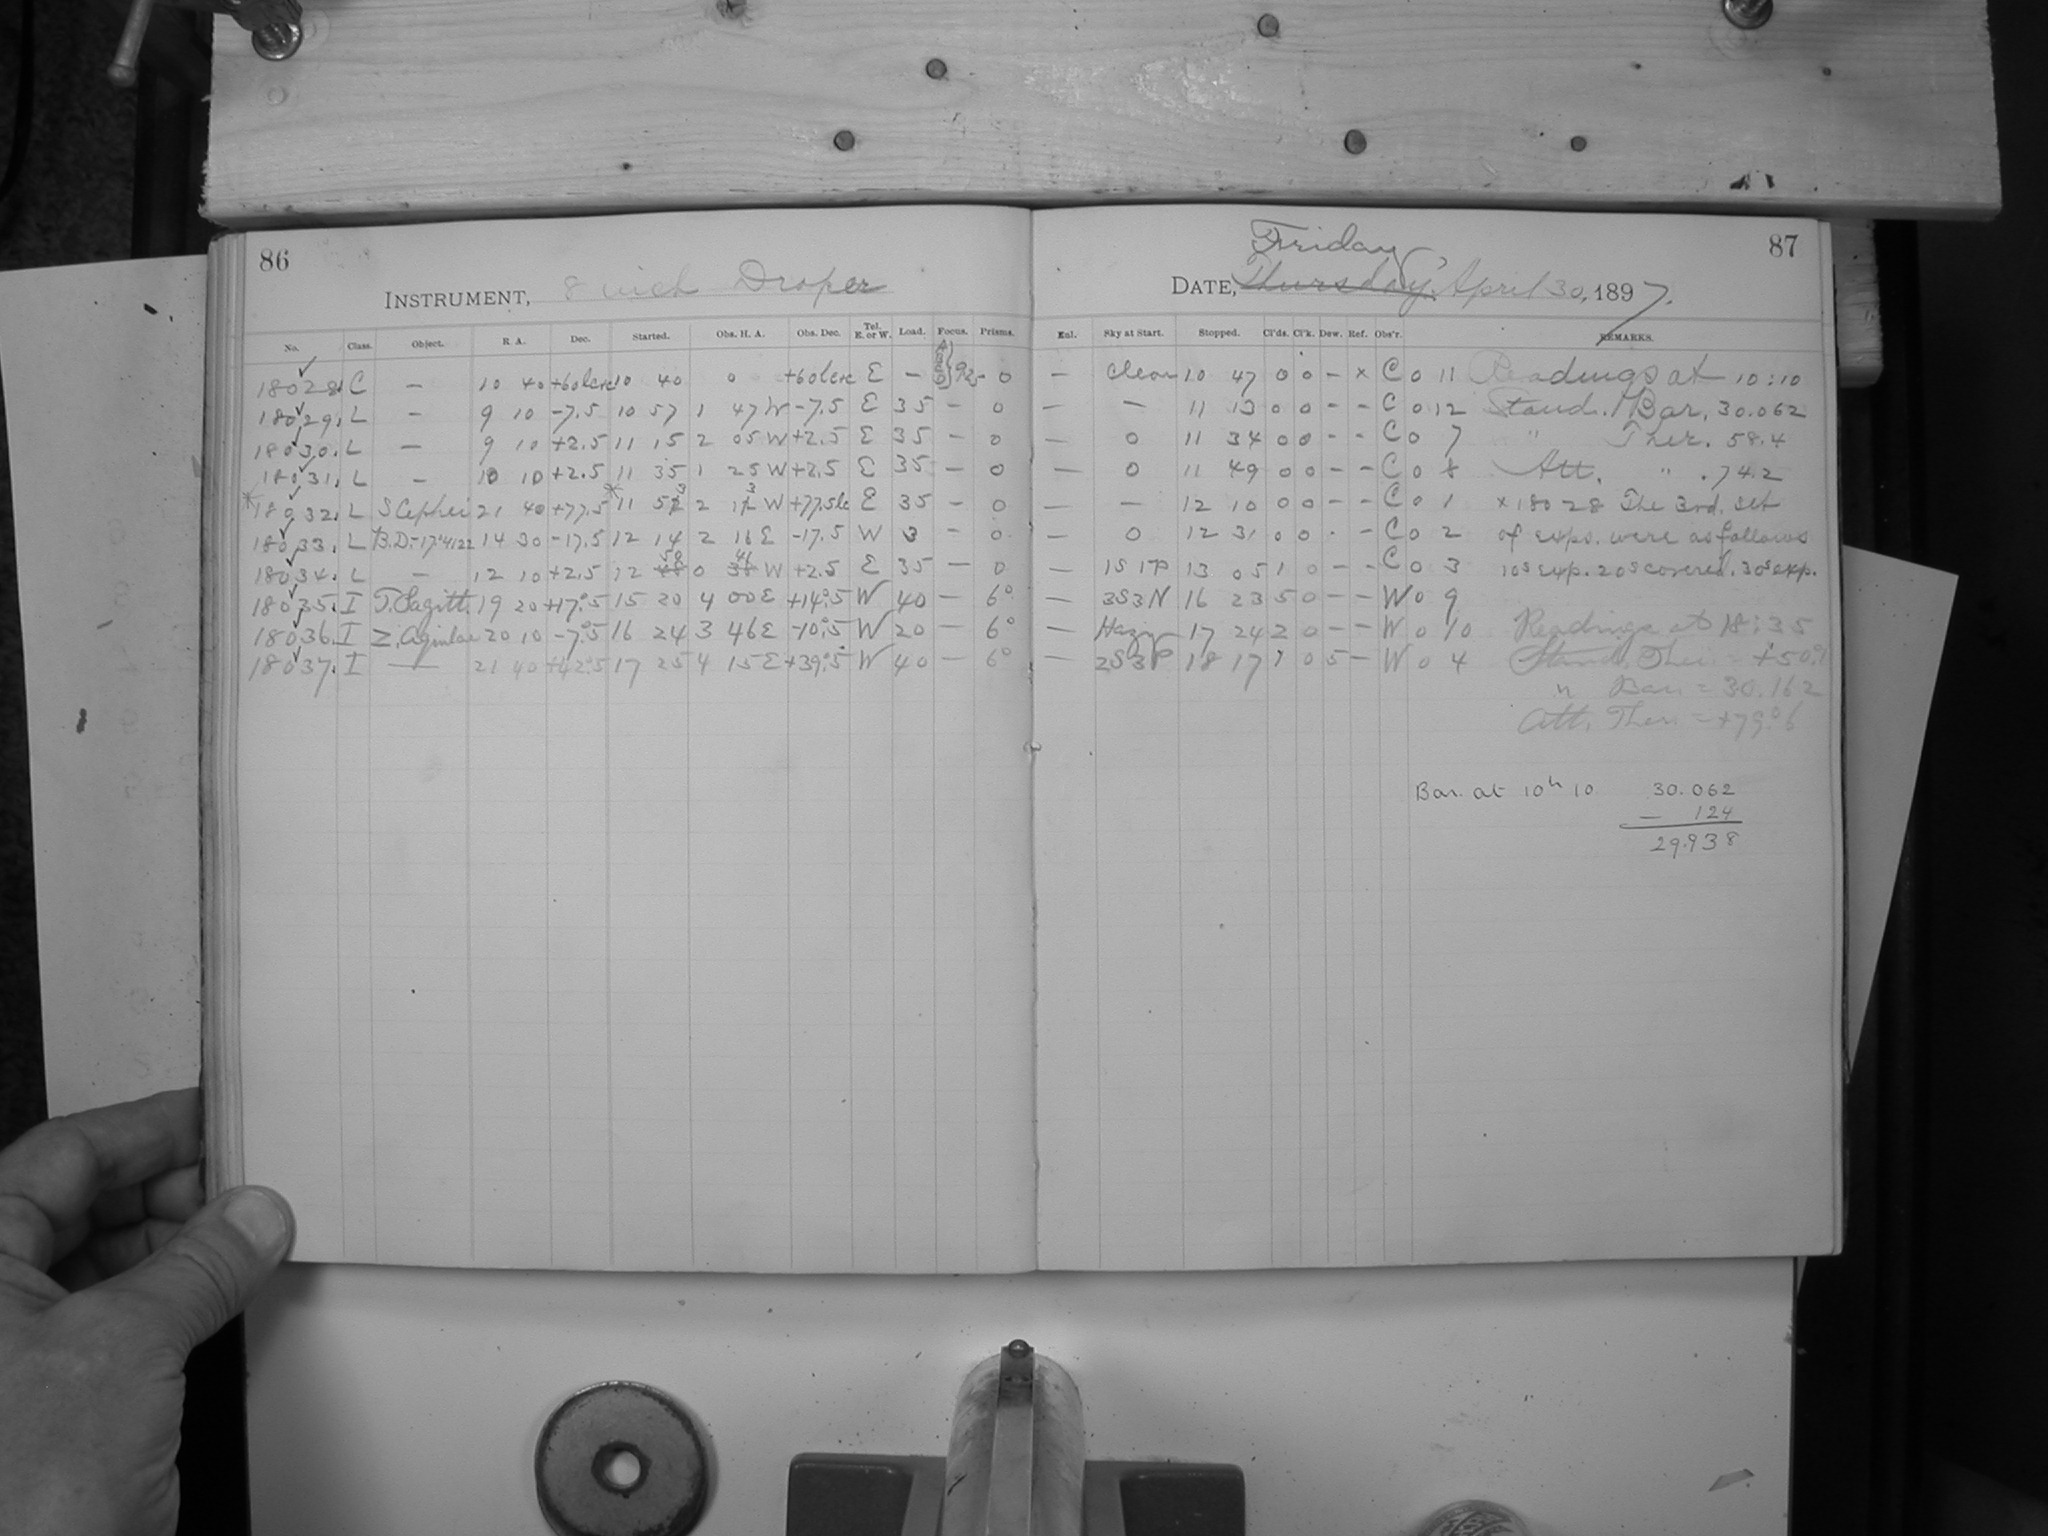 86
INSTRUMENT, 8 inch Draper
No. Class. Object. R. A. Dec. Started. Obs. H. A. Obs. Dec. Tel. E. or W. Load. Focus. Prisms.
18028. C — 10 40 +60 10 40 0 +60 E — 0
18029. L — 9 10 -7.5 10 57 1 47 W -7.5 E 35 — 0
18030. L — 9 10 +2.5 11 15 2 05 W +2.5 E 35 — 0
18031. L — 10 10 +2.5 11 35 1 25 W +2.5 E 35 — 0
18032. L S Cephei 21 40 +77.5 11 53 2 13 W +77.5 E 35 — 0
18033. L B.D.-17°4122 14 30 -17.5 12 14 2 16 E -17.5 W 3 — 0
18034. L — 12 10 +2.5 12 58 0 46 W +2.5 E 35 — 0
18035. I T. Sagitt. 19 20 +17°.5 15 20 4 00 E +14°.5 W 40 — 6°
18036. I Z. Aquilae 20 10 -7°.5 16 24 3 46 E -10°.5 W 20 — 6°
18037. I — 21 40 +42°.5 17 25 4 15 E +39°.5 W 40 — 6°
87
Friday
DATE, Thursday, April 30, 1897.
Enl. Sky at Start. Stopped. Cl'ds. Cl'k. Dew. Ref. Obs'r. REMARKS.
— Clear 10 47 0 0 — x C 0 11 Readings at 10:10
— — 11 13 0 0 - - C 0 12 Stand. Bar. 30.062
— 0 11 34 0 0 - - C 0 7 " Ther. 58.4
— 0 11 49 0 0 - - C 0 8 Att. " . 74.2
— — 12 10 0 0 - - C 0 1 x 18028 The 3rd. set
— 0 12 31 0 0 - - C 0 2 of exps. were as follows
— 1S 1P 13 05 1 0 - - C 0 3 10s exp. 20s covered. 30s exp.
— 3S3N 16 23 5 0 - - W 0 9
— Hazy 17 24 2 0 - - W 0 10 Readings at 18:35
— 2S3P 18 17 7 0 5 - W 0 4 Stand. Ther. = +50°.1
" Bar. = 30.162
Att. Ther. = +79°.6
Bar. at 10h 10 30.062
— 124
29.938